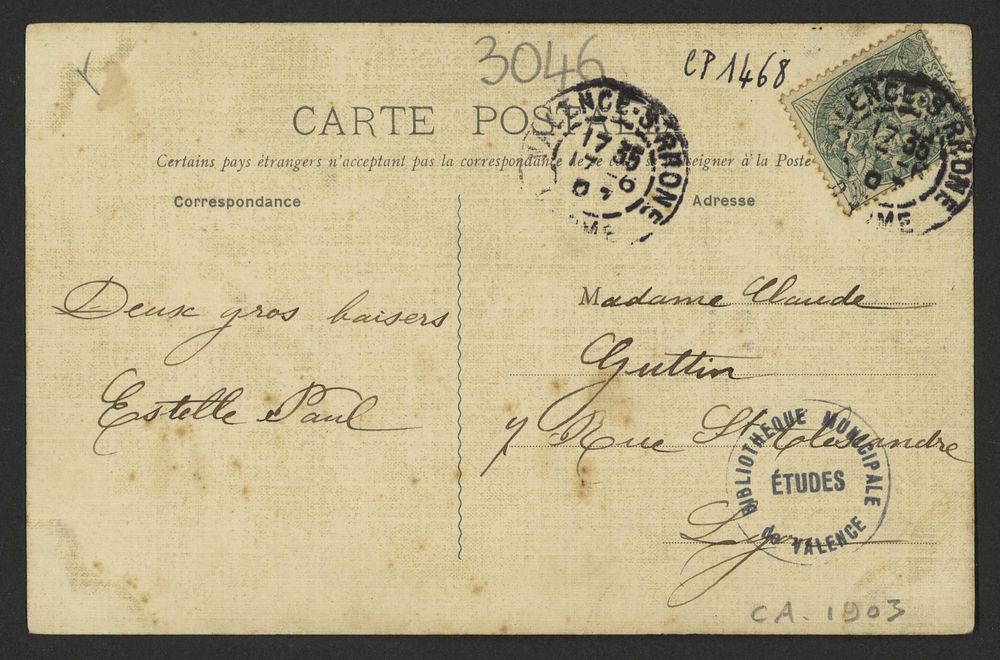 3046
CP 1468
CARTE POSTALE
Certains pays étrangers n'acceptant pas la correspondance de ce côté se renseigner à la Poste
Correspondance
Adresse
VALENCE-S-RHONE
17 35
7-6
07
DROME
VALENCE-S-RHONE
17 35
DROME
Deux gros baisers
Estelle Paul
Madame Claude
Guttin
7 Rue St Alessandre
Lyon
BIBLIOTHEQUE MUNICIPALE
ÉTUDES
de VALENCE
CA. 1903